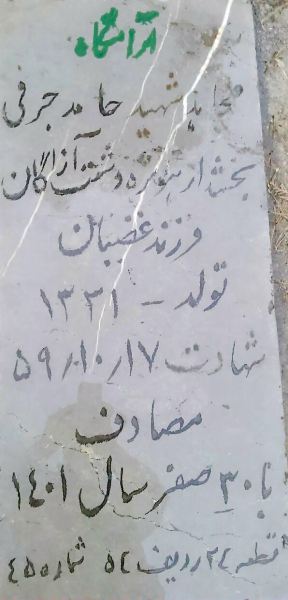 آرامگاه
مجاهد شهید حامد جرفی
بخشدار بستان و دشت آزادگان
فرزند غضبان
تولد - ۱۳۳۱
شهادت ۵۹٫۱۰٫۱۷
مصادف
با ۳۰ صفر سال ۱۴۰۱
قطعه ۲۴ ردیف ۵۲ شماره ۴۵